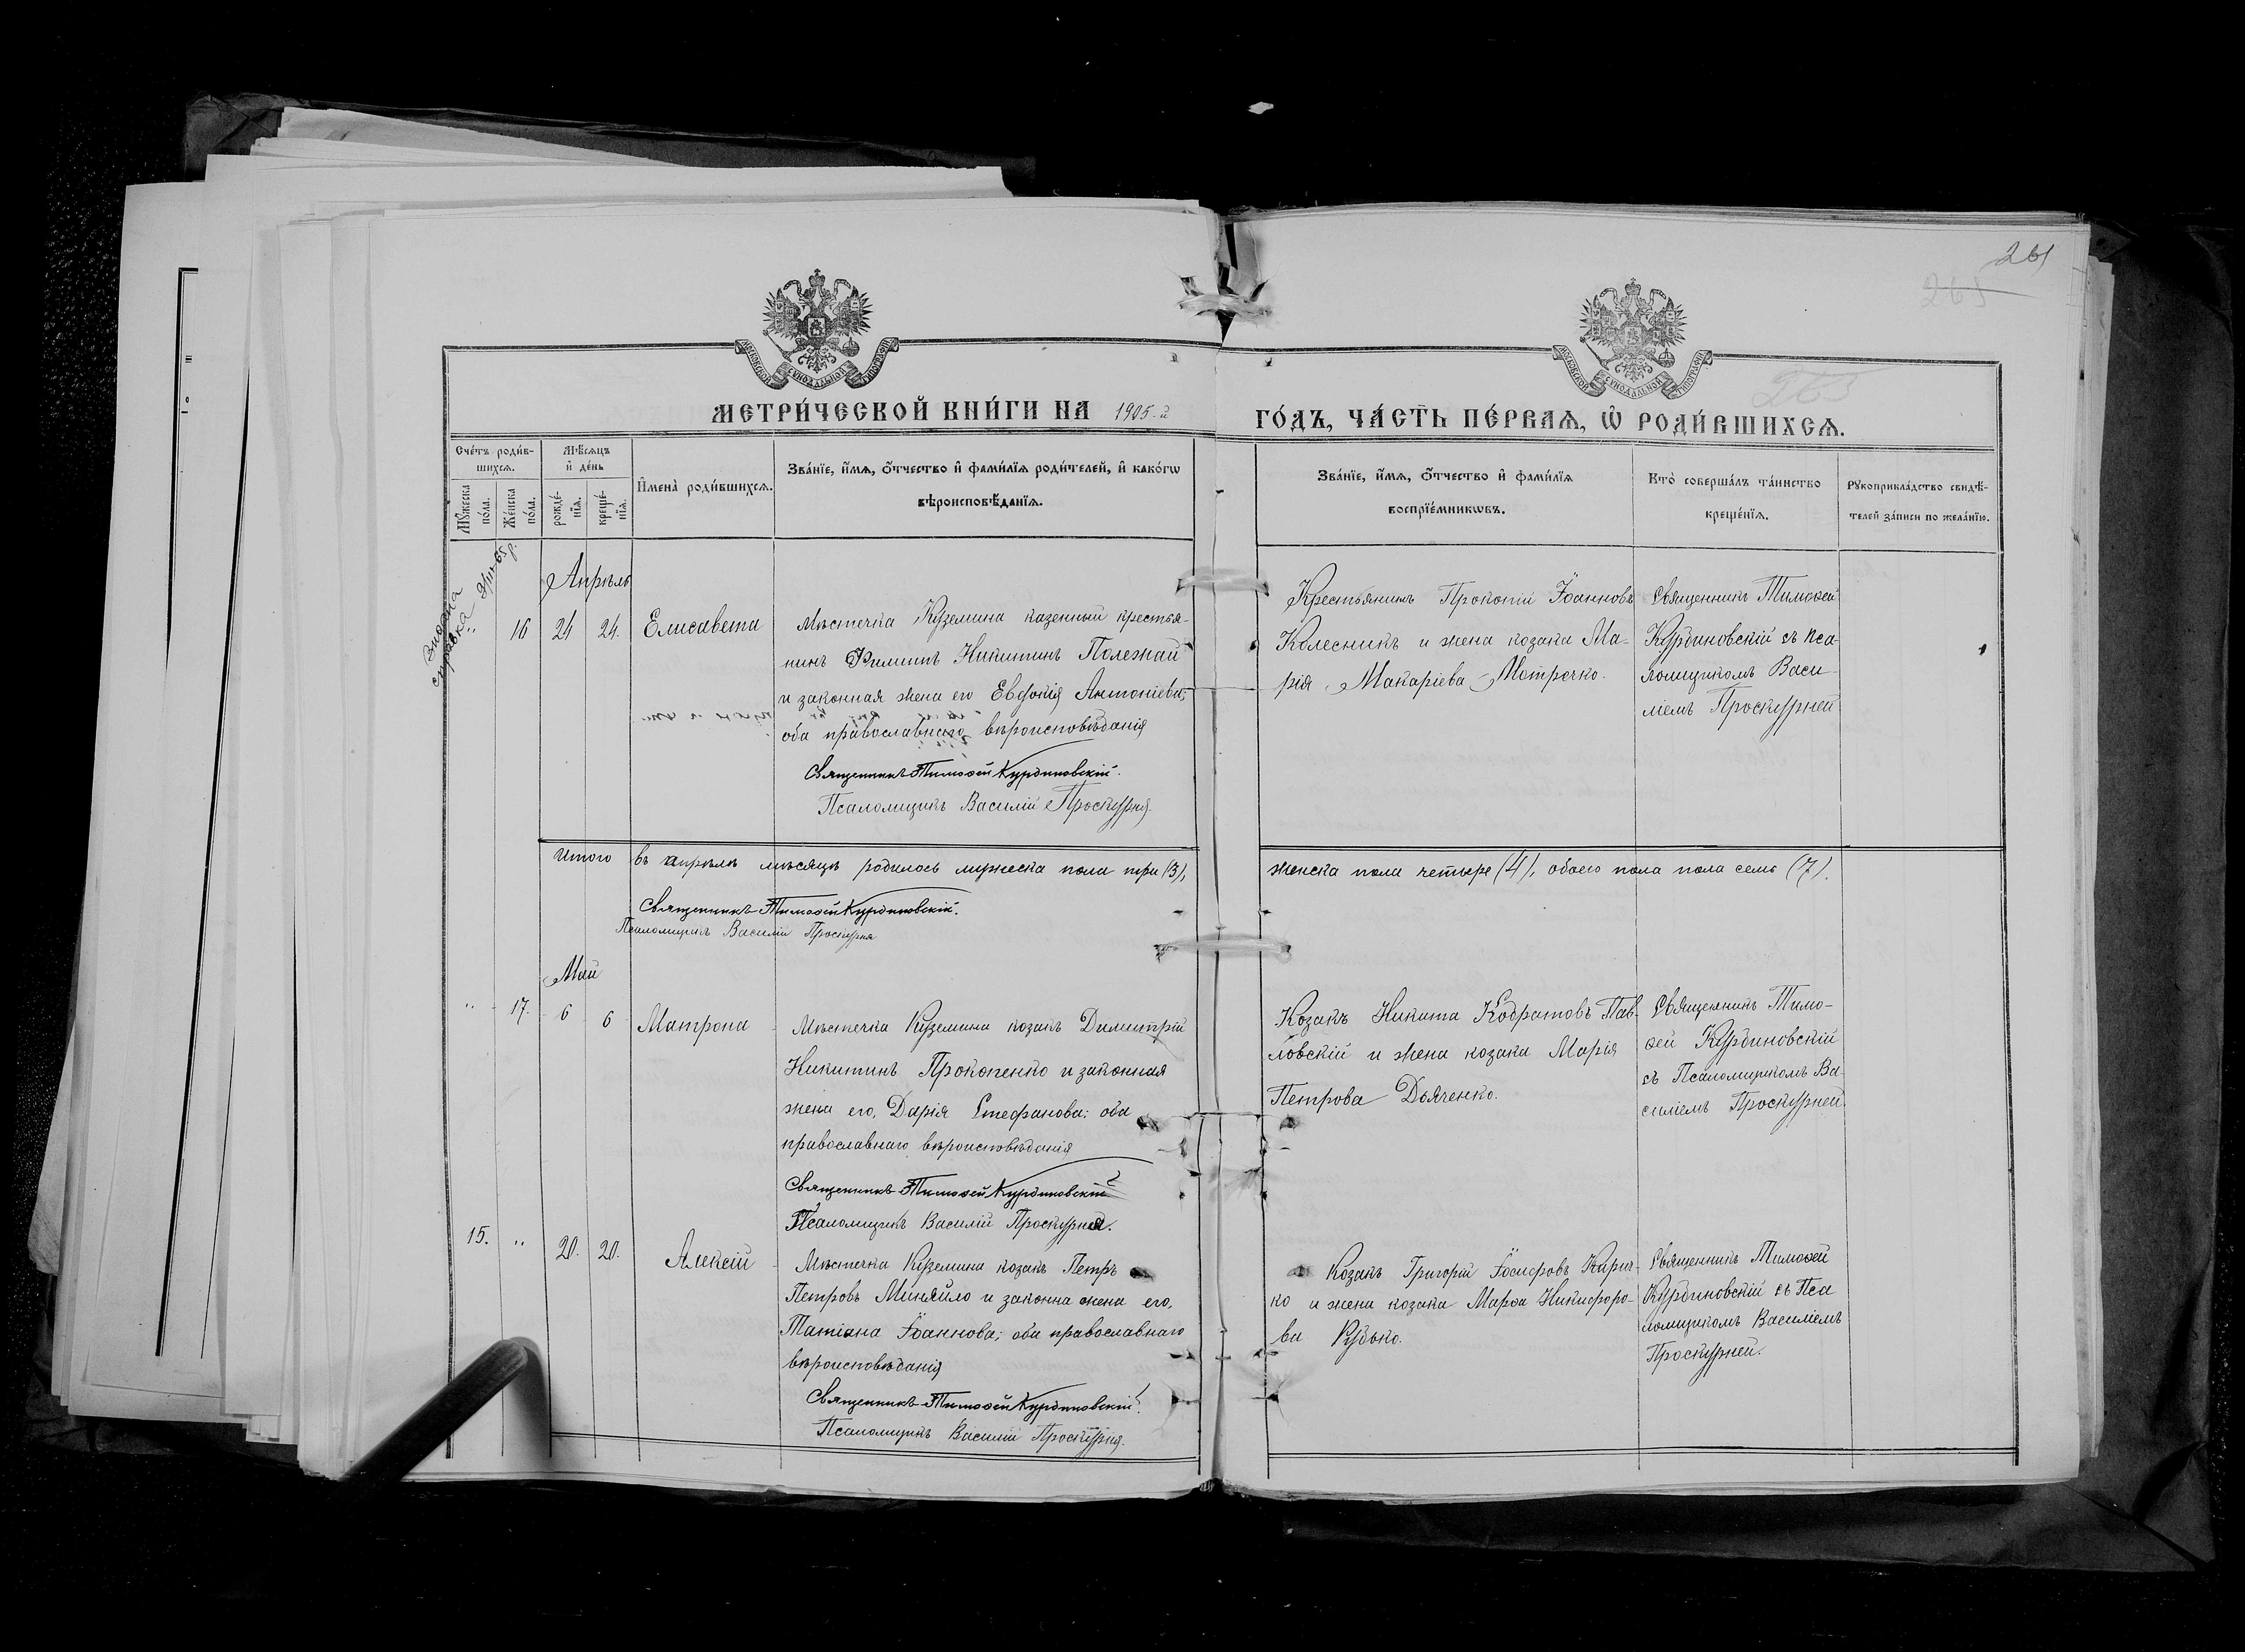 261
265
265
МОСКОВСКОЙ СѴНОДАЛЬНОЙ ТИПОГРАФІИ
МОСКОВСКОЙ СѴНОДАЛЬНОЙ ТИПОГРАФІИ
МЕТРИ́ЧЕСКОЙ КНИ́ГИ НА 1905-й
ГО́ДЪ, ЧА́СТЬ ПЕ́РВАѦ, Ѡ҆ РОДИ́ВШИХСѦ.
Сче́тъ роди́в-
шихсѧ.
Мꙋ́жеска
по́ла.
Же́нска
по́ла.
Мѣ́сѧцъ
и҆ де́нь
рожде́-
нїѧ.
креще́-
нїѧ.
И҆мена̀ роди́вшихсѧ.
Зва́нїе, и҆́мѧ, ѻ҆́тчество и҆ фами́лїѧ роди́телей, и҆ како́гѡ
вѣроисповѣ́данїѧ.
Зва́нїе, и҆́мѧ, ѻ҆́тчество и҆ фами́лїѧ
воспрїе́мникѡвъ.
Кто̀ соверша́лъ та́инство
креще́нїѧ.
Рꙋкоприкла́дство свидѣ́-
телей за́писи по жела́нїю.
справка
Апрѣль
„ 16 24 24. Елисавета
Мѣстечка Куземина казенный крестья-
нинъ Филиппъ Никитинъ Полежай
и законная жена его Евфимія Антоніева,
оба православнаго вѣроисповѣданія
Священникъ Тимоѳей Курдиновскій.
Псаломщикъ Василій Проскурня.
Крестьянинъ Прокопій Іоанновъ
Колесникъ и жена козака Ма-
рія Макаріева Мотречко.
Священникъ Тимоѳей
Курдиновскій съ пса-
ломщикомъ Васи-
ліемъ Проскурней
Итого въ апрѣлѣ мѣсяцѣ родилось мужеска пола три (3),
женска пола четыре (4), обоего пола пола семь (7).
Священникъ Тимоѳей Курдиновскій.
Псаломщикъ Василій Проскурня
Май
„ 17. 6 6 Матрона
Мѣстечка Куземина козакъ Димитрій
Никитинъ Прокопенко и законная
жена его, Дарія Стефанова; оба
православнаго вѣроисповѣданія
Священникъ Тимоѳей Курдиновскій
Псаломщикъ Василій Проскурня.
Козакъ Никита Кодратовъ Пав-
ловскій и жена козака Марія
Петрова Дьяченко.
Священникъ Тимо-
ѳей Курдиновскій
съ Псаломщикомъ Ва-
силіемъ Проскурней
15. „ 20. 20. Алексій
Мѣстечка Куземина козакъ Петръ
Петровъ Миняйло и законна жена его,
Татіана Іоаннова; оба православнаго
вѣроисповѣданія
Священникъ Тимоѳей Курдиновскій.
Псаломщикъ Василій Проскурня.
Козакъ Григорій Іосифовъ Кирич-
ко и жена козака Марѳа Никифоро-
ва Рудько.
Священникъ Тимоѳей
Курдиновскій съ Пса
ломщикомъ Василіемъ
Проскурней.